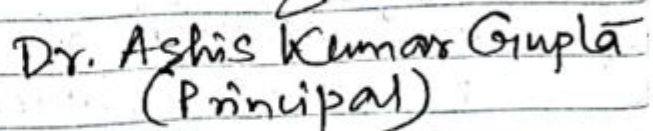 Dr. Ashis Kumar Gupta
(Principal)